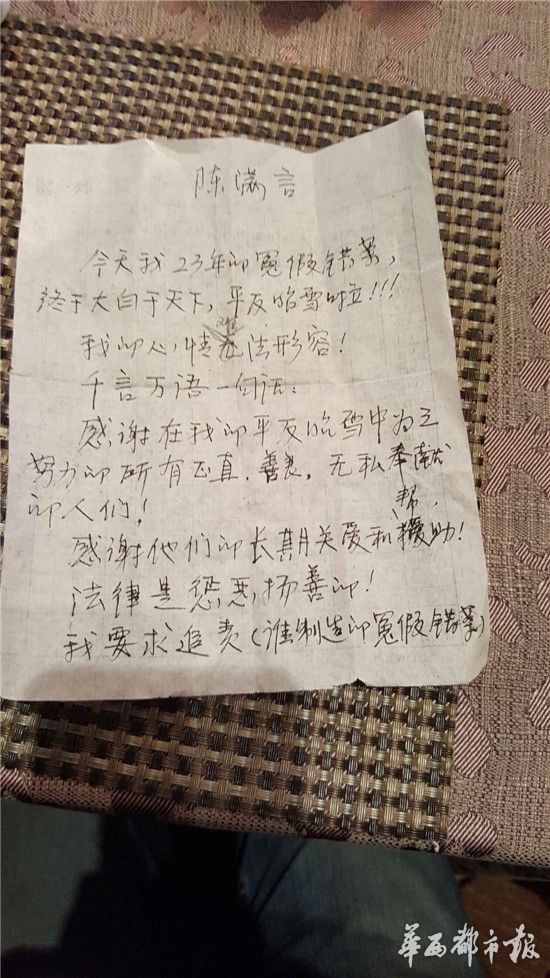 陈满言
今天我23年的冤假错案，
终于大白于天下，平反昭雪啦!!!
我的心情难法形容！
千言万语一句话：
感谢在我的平反昭雪中为之
努力的所有正直.善良，无私奉献
的人们！
感谢他们的长期关爱和帮助！
法律是惩恶,扬善的！
我要求追责(谁制造的冤假错案)
华西都市报